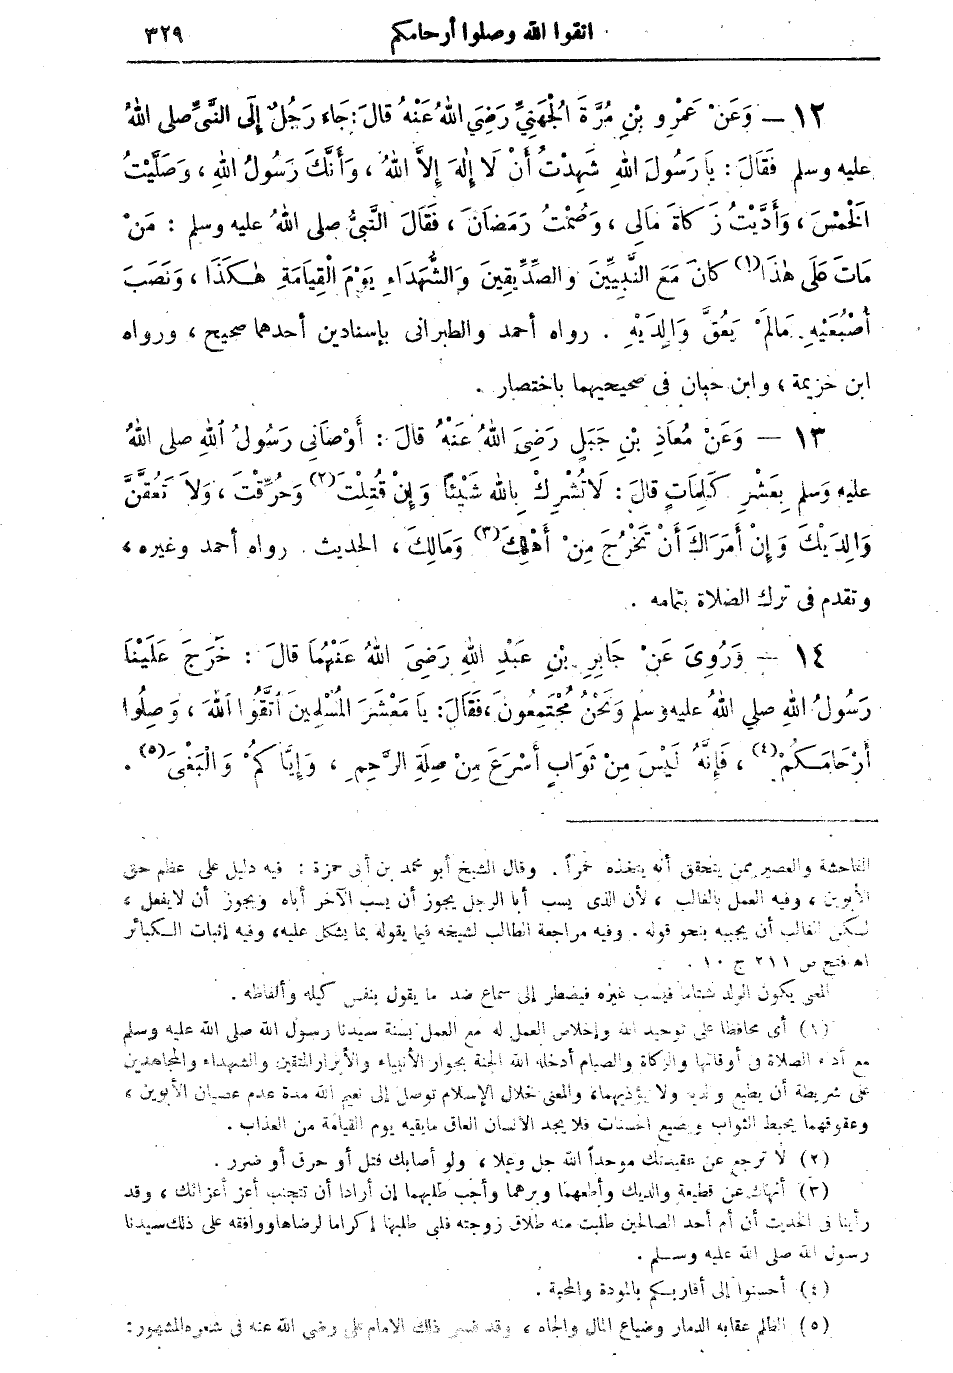 اتقوا الله وصلوا أرحامكم ٣٢٩
١٢ — وَعَنْ عَمْرِو بْنِ مُرَّةَ الْجُهَنِيِّ رَضِيَ اللهُ عَنْهُ قَالَ: جَاءَ رَجُلٌ إِلَى النَّبِيِّ صلى اللهُ
عليه وسلم فَقَالَ: يَا رَسُولَ اللهِ شَهِدْتُ أَنْ لَا إِلٰهَ إِلاَّ اللهُ، وَأَنَّكَ رَسُولُ اللهِ، وَصَلَّيْتُ
الْخَمْسَ، وَأَدَّيْتُ زَكَاةَ مَالِي، وَصُمْتُ رَمَضَانَ، فَقَالَ النَّبِيُّ صلى اللهُ عليه وسلم: مَنْ
مَاتَ عَلَى هٰذَا(١) كَانَ مَعَ النَّبِيِّينَ والصِّدِّيقِينَ وَالشُّهَدَاءِ يَوْمَ الْقِيَامَةِ هٰكَذَا، وَنَصَبَ
أُصْبُعَيْهِ مَالَمْ يَعُقَّ وَالِدَيْهِ. رواه أحمد والطبرانى بإسنادين أحدهما صحيح، ورواه
ابن خزيمة، وابن حبان فى صحيحيهما باختصار.
١٣ — وَعَنْ مُعَاذِ بْنِ جَبَلٍ رَضِيَ اللهُ عَنْهُ قَالَ: أَوْصَانِى رَسُولُ اللهِ صلى اللهُ
عليه وَسلم بِعَشْرِ كَلِمَاتٍ قالَ: لَا تُشْرِكْ بِاللهِ شَيْئًا وَإِنْ قُتِلْتَ(٢) وَحُرِّقْتَ، وَلاَ تَعُقَّنَّ
وَالِدَيْكَ وَإِنْ أَمَرَاكَ أَنْ تَخْرُجَ مِنْ أَهْلِكَ(٣) وَمَالِكَ، الحديث. رواه أحمد وغيره،
وتقدم فى ترك الصلاة بتمامه.
١٤ — وَرُوِىَ عَنْ جَابِرِ بْنِ عَبْدِ اللهِ رَضِيَ اللهُ عَنْهُمَا قَالَ: خَرَجَ عَلَيْنَا
رَسُولُ اللهِ صلي اللهُ عليه وسلم وَنَحْنُ مُجْتَمِعُونَ، فَقَالَ: يَا مَعْشَرَ الْمُسْلِمِينَ اتَّقُوا اللهَ، وَصِلُوا
أَرْحَامَكُمْ(٤)، فَإِنَّهُ لَيْسَ مِنْ ثَوَابٍ أَسْرَعَ مِنْ صِلَةِ الرَّحِمِ، وَإِيَّاكُمْ وَالْبَغْىَ(٥).
الفاحشة والعصير ممن يتحقق أنه يتخذه خمراً. وقال الشيخ أبو محمد بن أبى حمزة: فيه دليل على عظم حق
الأبوين، وفيه العمل بالغالب، لأن الذى يسب أبا الرجل يجوز أن يسب الآخر أباه ويجوز أن لا يفعل،
لكن الغالب أن يجيبه بنحو قوله. وفيه مراجعة الطالب لشيخه فيما يقوله بما يشكل عليه، وفيه إثبات الكبائر
اه فتح ص ٢١١ ج ١٠.
المعنى يكون الولد شتاما فيسب غيره فيضطر إلى سماع ضد ما يقول بنفس كيله وألفاظه.
(١) أى محافظا على توحيد الله وإخلاص العمل له مع العمل بسنة سيدنا رسول الله صلى الله عليه وسلم
مع أداء الصلاة فى أوقاتها والزكاة والصيام أدخله الله الجنة بجوار الأنبياء والأبرار المتقين والشهداء والمجاهدين
على شريطة أن يطيع والديه ولا يؤذيهما، والمعنى خلال الإسلام توصل إلى نعيم الله مدة عدم عصيان الأبوين،
وعقوقهما يحبط الثواب ويضيع الحسنات فلا يجد الانسان العاق مايقيه يوم القيامة من العذاب.
(٢) لا ترجع عن عقيدتك موحداً الله جل وعلا، ولو أصابك قتل أو حرق أو ضرر.
(٣) أنهاك عن قطيعة والديك وأطعهما وبرهما وأجب طلبهما إن أرادا أن تتجنب أعز أعزائك، وقد
رأينا فى الحديث أن أم أحد الصالحين طلبت منه طلاق زوجته فلبى طلبها إكراما لرضاها ووافقه على ذلك سيدنا
رسول الله صلى الله عليه وسلم.
(٤) أحسنوا إلى أقاربكم بالمودة والمحبة.
(٥) الظلم عقابه الدمار وضياع المال والجاه، وقد فسر ذلك الامام على رضي الله عنه فى شعره المشهور: